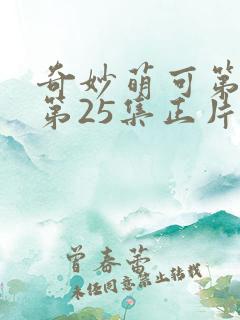 奇妙萌可第
第25集正片
曾春蕾
未经同意禁止转载